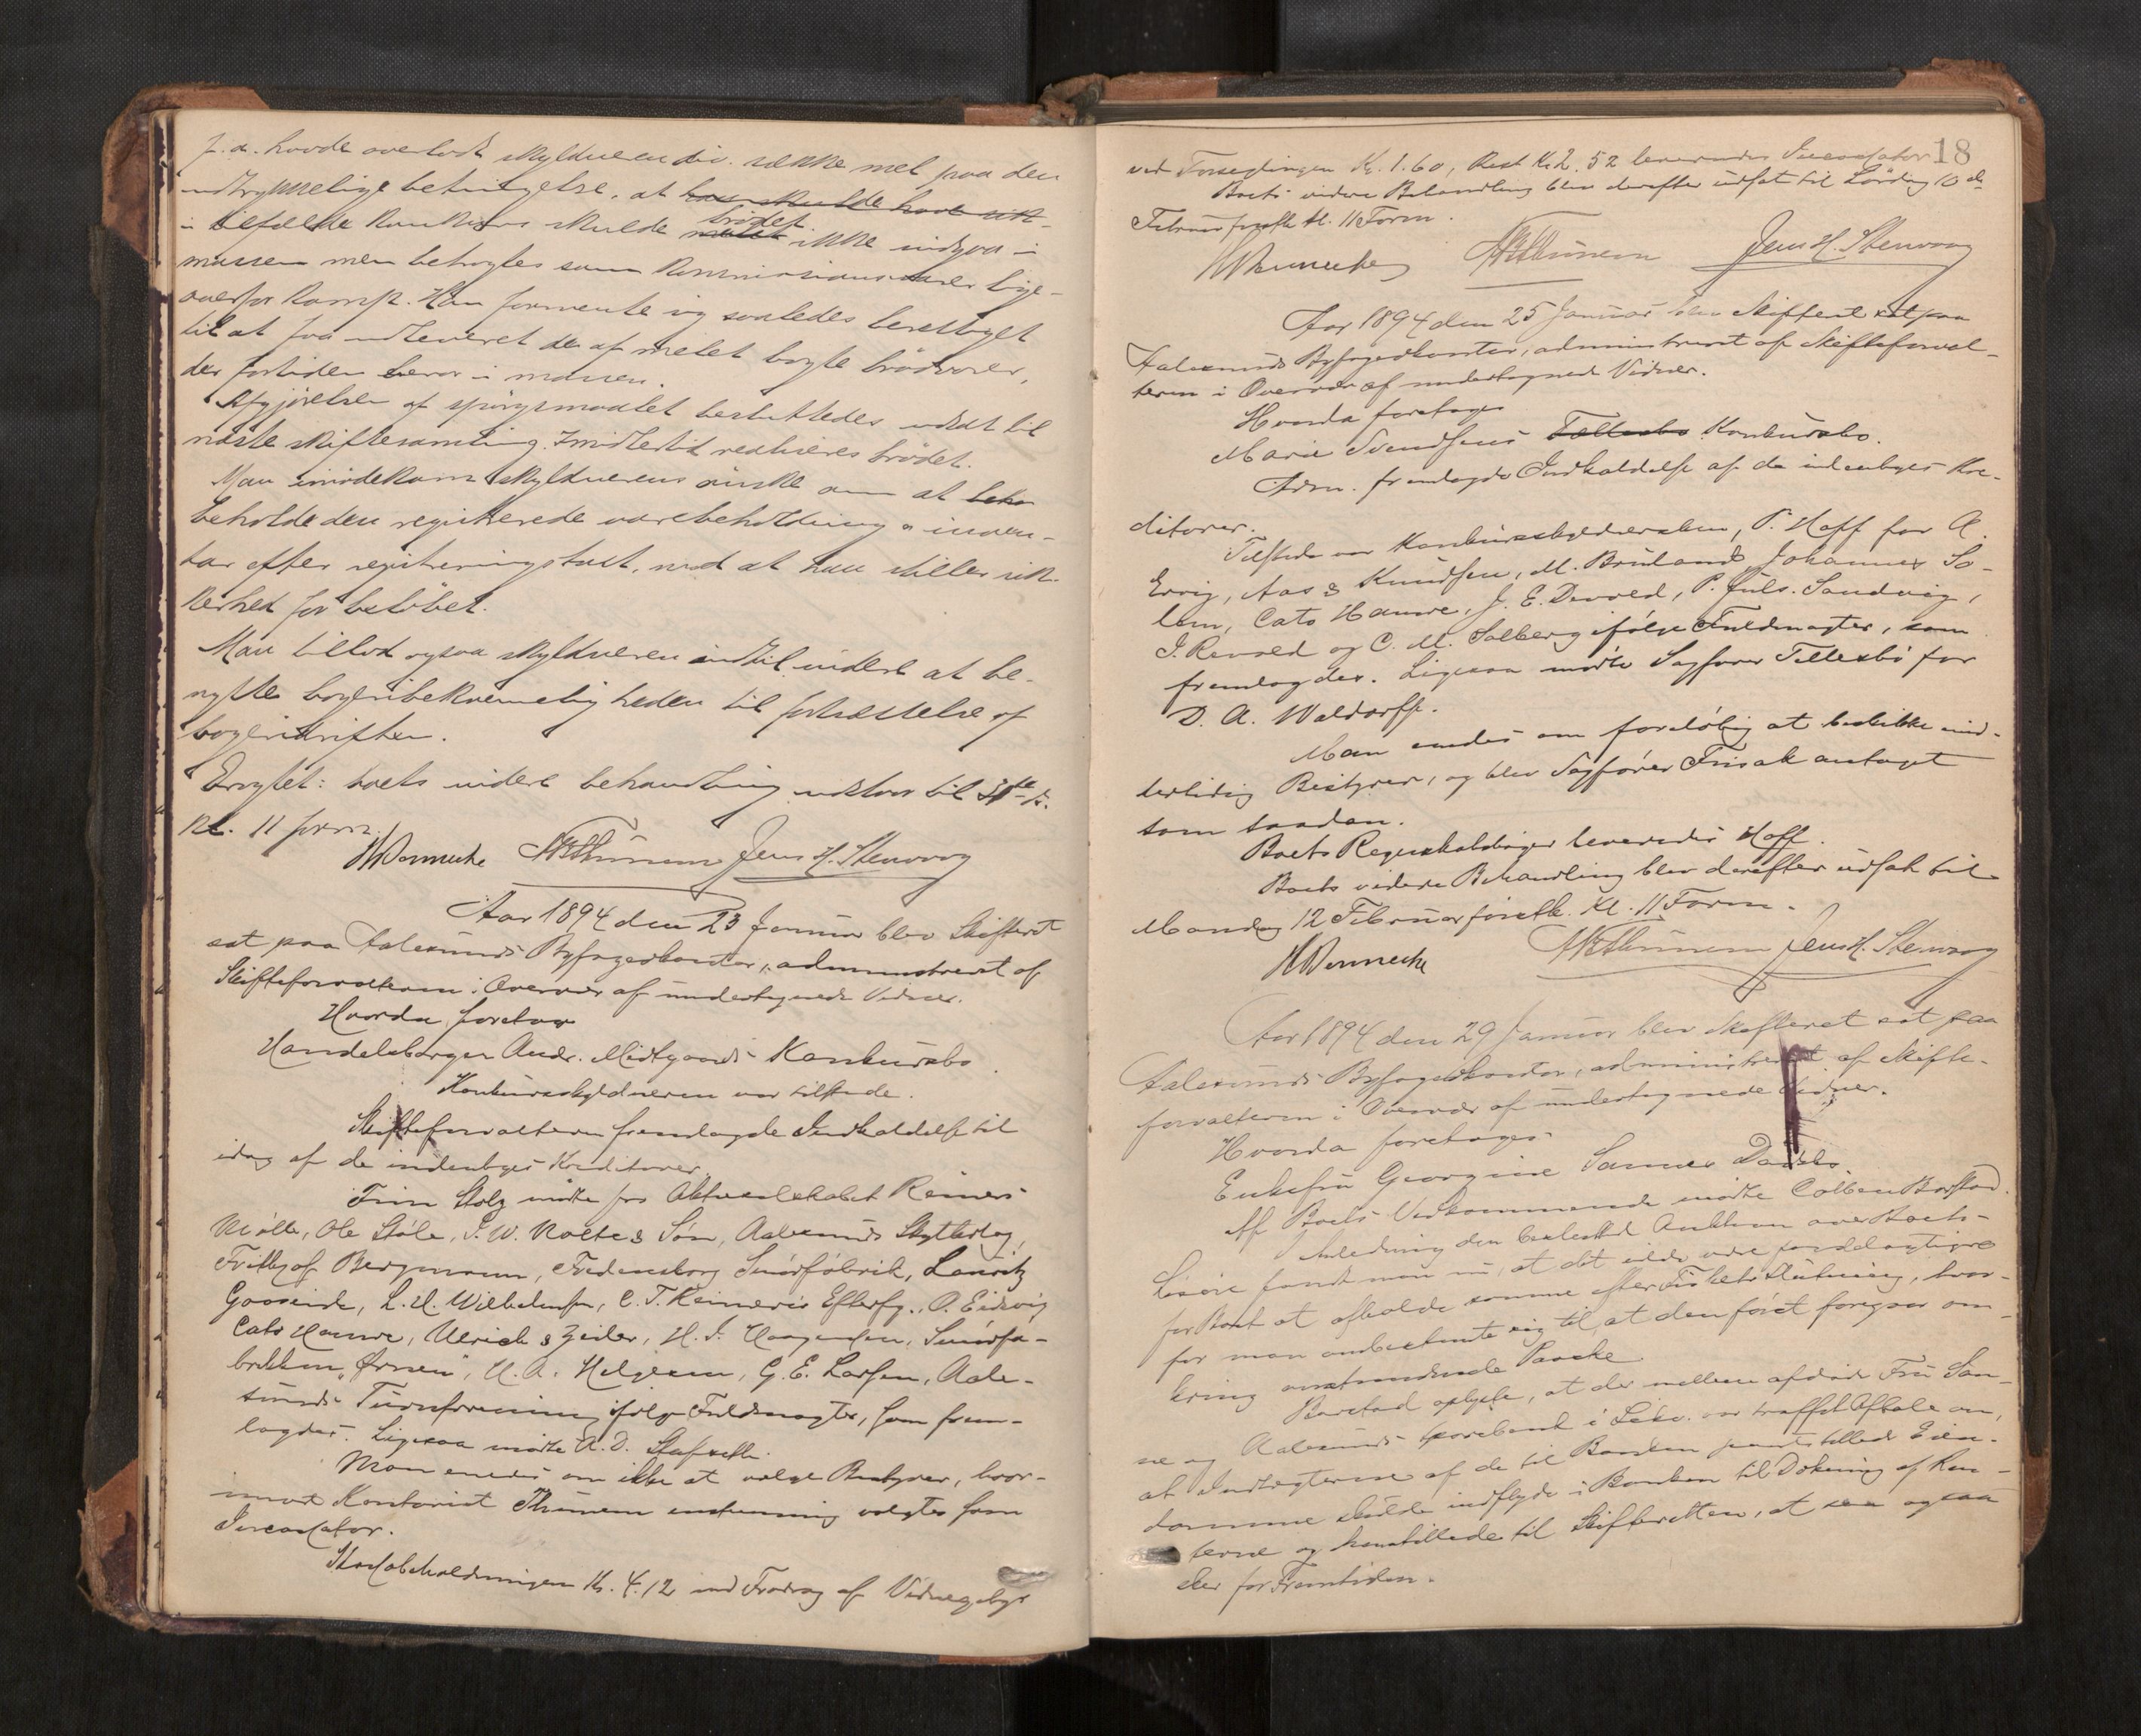 f. a. havde overladt skyldneren div. sække mel paa den
udtrykkelige betingelse, at
i tilfælde konkurs skulde brödet ikke indgaa i
massen men betragtes som kommissionsvarer lige-
overfor komp. Han formente sig saaledes berettiget
til at faa udleveret de af melet bagte brödvarer,
der fortiden beror i massen.
Afgjörelsen af spörgsmaalet besluttedes udsat til
næste skiftesamling. Imidlertid realiseres brödet.
Man imödekom skyldnerens önske om at
beholde den registrerede varebeholdning o inven-
tar efter registreringstaxt, mod at han stiller sik-
kerhed for belöbet.
Man tillod ogsaa skyldneren indtil videre at be-
nytte bageribekvemmeligheden til fortsættelse af
bageridriften.
Eragtet: boets videre behandling udstaar til 31te ds.
kl. 11 form.
HBennecke NBThunem Jens H. Stenvaag
Aar 1894 den 23 Januar blev Skifteret
sat paa Aalesunds Byfogedkontor, administreret af
Skifteforvalteren i Overvær af undertegnede Vidner.
Hvorda foretoges
Handelsborger Andr. Midtgaards Konkursbo.
Konkursskyldneren var tilstede.
Skifteforvalteren fremlagde Indkaldelse til
idag af de indenbyes Kreditorer.
Finn Stolz mödte for Aktieselskabet Reimers
Mölle, Ole Stöle, P. W. Rolte & Sön, Aalesunds Skytterlag,
Frithjof Bergmann, Fredensborg Smörfabrik, Lauritz
Gaaseide, L. H. Wilhelmsen, C. T. Reimeris Efterfg., O. Eidsvig
Cato Hamre, Ulrich & Zeiler, H. I. Haagensen, Smörfa-
brikken "Örnen", H. A. Helgesen, G. E. Larsen, Aale-
sunds Turnforening ifölge Fuldmagter, som frem-
lagdes. Ligesaa mödte A. O. Slafsett.
Man enedes om ikke at vælge Bestyrer, hvor-
imod Kontorist Thunem enstemmig valgtes som
Incassator.
Kassabeholdningen Kr. 4.12 ved Fradrag af Vidnegebyr
18
ved Forseglingen Kr. 1.60, Rest Kr. 2.52 leveredes Incassator
Boets videre Behandling blev derefter udsat til Lördag 10de
Februar förstk. kl. 11 Form.
HBennecke NBThunem Jens H. Stenvaag
Aar 1894 den 25 Januar blev Skifteret sat paa
Aalesunds Byfogedkontor, administreret af Skifteforval-
teren i Overvær af undertegnede Vidner.
Hvorda foretoges
Marie Svendsens Fællesbo Konkursbo.
Adm. fremlagde Indkaldelse af de indenbyes Kre-
ditorer.
Tilstede var Konkursskyldnersken, P. Hoff for A.
Ervig, Aas & Knudsen, M. Bruland, Johannes So-
lem, Cato Hamre, J. E. Devold, P. Juls. Sandvig,
I. Revold og C. M. Solberg ifölge Fuldmagter, som
fremlagdes. Ligesaa mödte Sagförer Tellesbö for
D. A. Waldorff.
Man enedes om forelöbig at beskikke mid-
lertidig Bestyrer, og blev Sagförer Frisak antaget
som saadan.
Boets Regnskabsböger leveredes Hoff.
Boets videre Behandling blev derefter udsat til
Mandag 12 Februar förstk. Kl. 11 Form.
HBennecke NBThunem Jens H. Stenvaag
Aar 1894 den 29 Januar blev Skifteret sat paa
Aalesunds Byfogedkontor, administreret af Skifte-
forvalteren i Overvær af undertegnede Vidner.
Hvorda foretoges
Enkefru Georgine Sannes Dödsbo.
Af Boets Vedkommende mödte Colben Barstad.
I Anledning den besluttede Auktion over Boets
Lösöre fandt man nu, at det vilde være fordelagtigere
for Boet at afholde samme efter Fiskets Slutning, hvor-
for man ombestemte sig til, at den först foregaar om-
kring anstundende Paaske.
Barstad oplyste, at der mellem afdöde Fru San-
ne og Aalesunds Sparebank i Sekv. var truffet Aftale om,
at Indtægterne af de til Banken pantstillede Eien-
domme skulde indflyde i Banken til Dækning af Ren-
terne og henstillede til Skifteretten, at saa ogsaa
sker for Fremtiden.